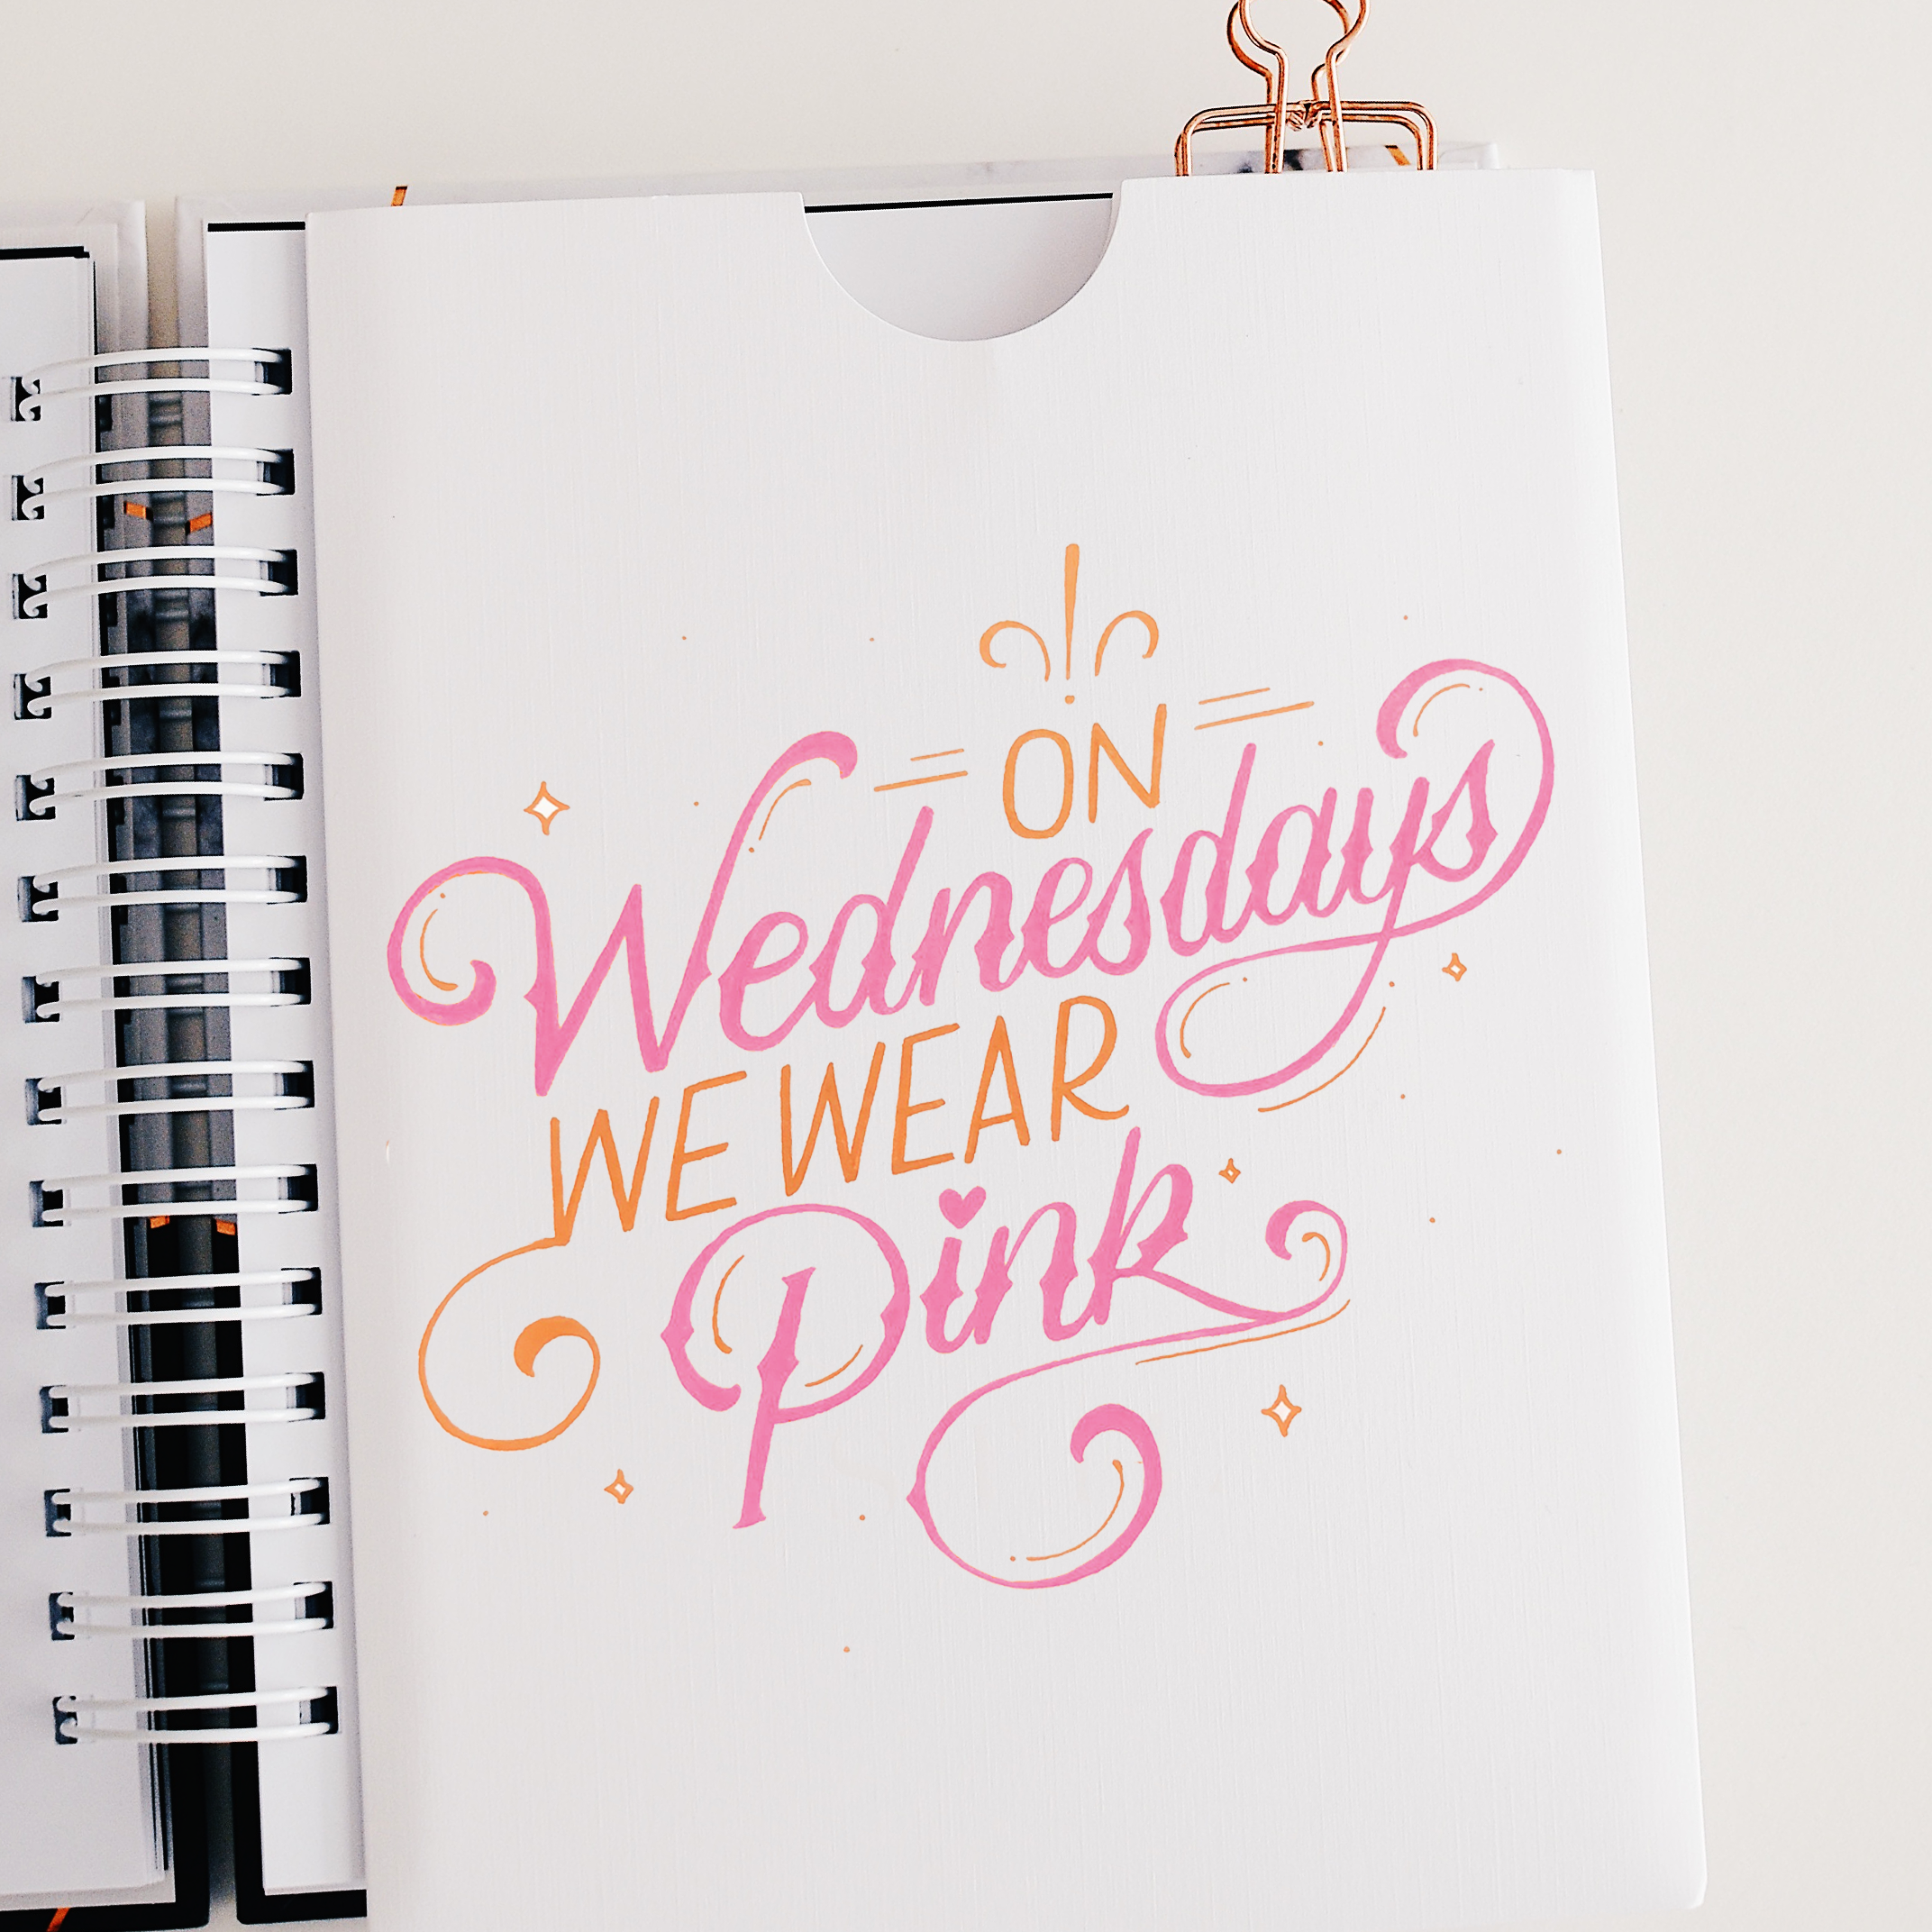 ON
Wednesdays
WE WEAR
Pink